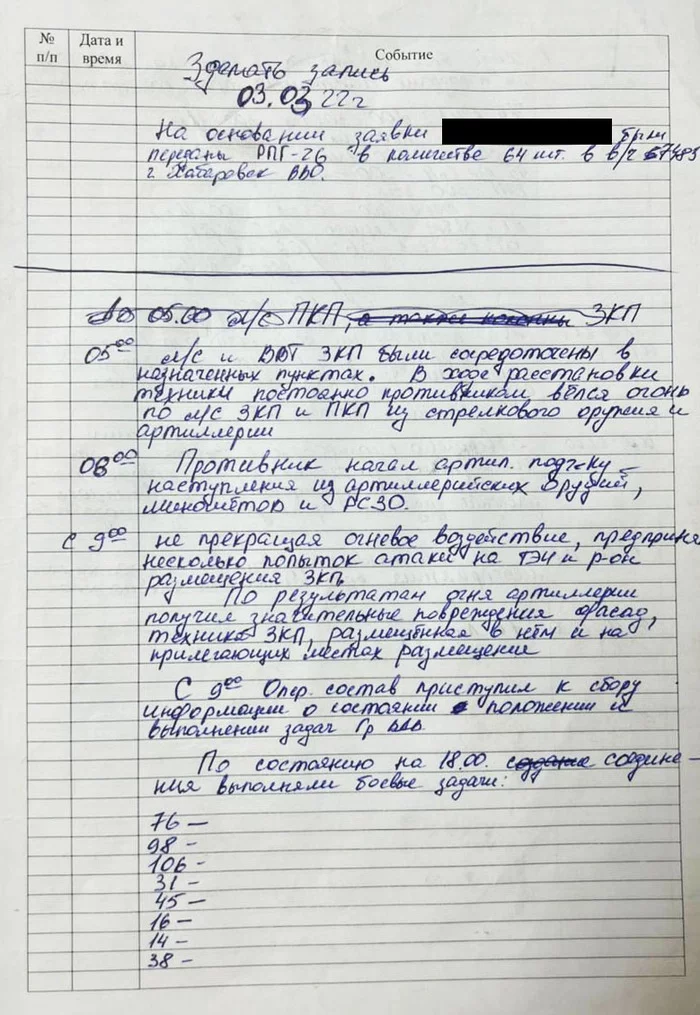 № п/п
Дата и время
Событие
Зделать запись
03.03 22г
На основании заявки
переданы РПГ-26 в количестве 64 шт. в в/ч 67485
г. Хабаровск ВВО.
До 05.00 л/с ПКП, а также колонны ЗКП
05⁰⁰ л/с и ВВТ ЗКП были сосредоточены в
назначенных пунктах. В ходе расстановки
техники постоянно противником вёлся огонь
по л/с ЗКП и ПКП из стрелкового оружия и
артиллерии
08⁰⁰ Противник начал артил. подг-ку
наступления из артиллерийских орудий,
миномётов и РСЗО.
С 9⁰⁰ не прекращая огневое воздействие, предприня
несколько попыток атаки на ТЭЧ и р-он
размещения ЗКП.
По результатам огня артиллерии
получил значительные повреждения фасад,
техника ЗКП, размещённая в нём и на
прилегающих местах размещения
С 9⁰⁰ Опер. состав приступил к сбору
информации о состоянии положении и
выполнении задач Гр ВДВ.
По состоянию на 18.00. соедине-
ния выполняли боевые задачи:
76 —
98 —
106 —
31 —
45 —
16 —
14 —
38 —